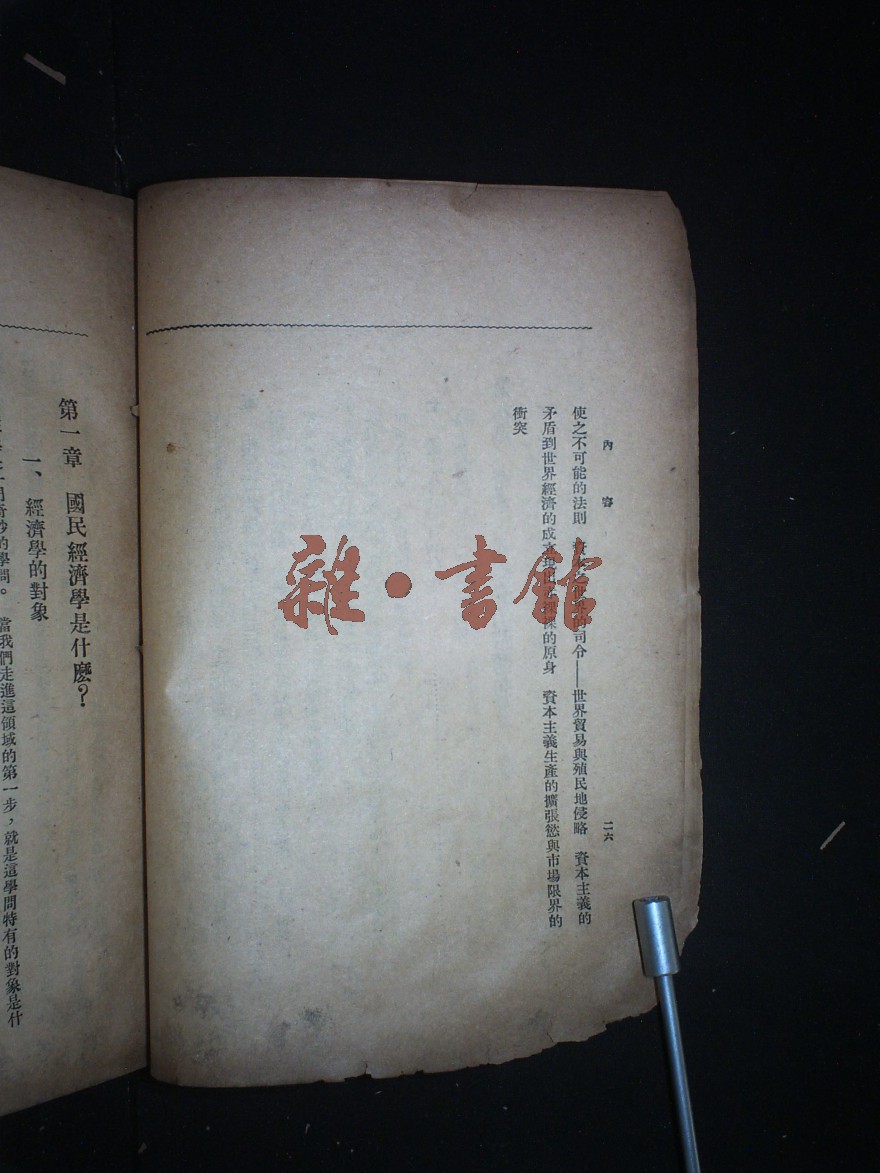 內容
二六
使之不可能的法則 資本之世界的司令——世界貿易與殖民地侵略 資本主義的
矛盾到世界經濟的成立現出裸裸的原身 資本主義生產的擴張慾與市場限界的
衝突
第一章 國民經濟學是什麽？
一、經濟學的對象
的學問。當我們走進這領域的第一步，就是這學問特有的對象是什
雜·書館